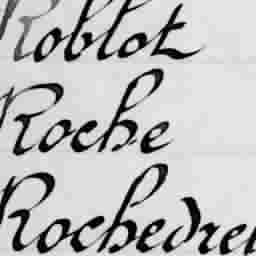 Roblot
Roche
Rochedreu